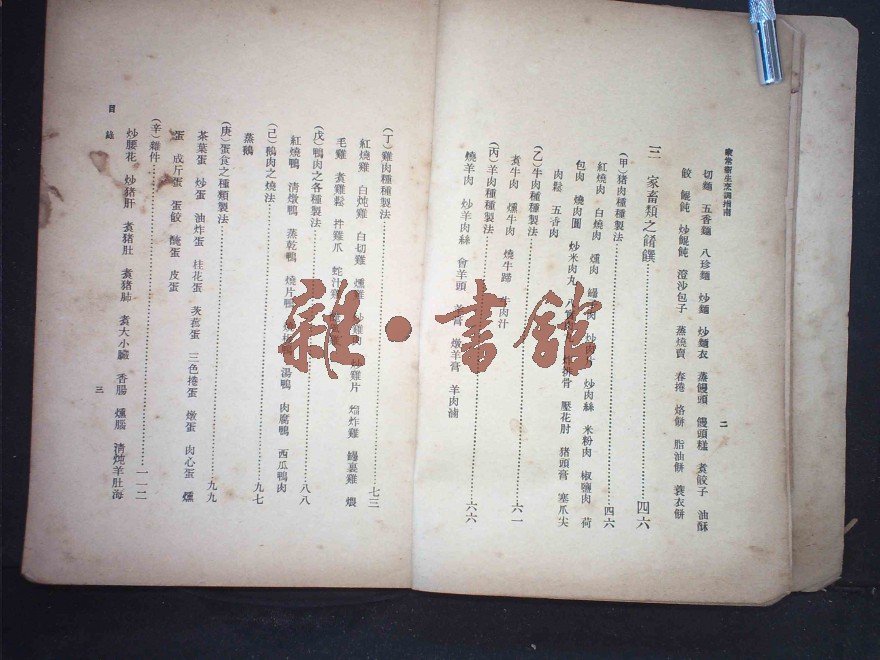 家常衛生烹調指南
二
切麵 五香麵 八珍麵 炒麵 炒麵衣 蒸饅頭 饅頭糕 煮餃子 油酥
餃 餛飩 炒餛飩 澄沙包子 蒸燒賣 春捲 烙餅 脂油餅 蓑衣餅
三 家畜類之餚饌 四六
(甲)豬肉種種製法 四六
紅燒肉 白燒肉 燻肉 炒肉絲 米粉肉 椒鹽肉 荷
包肉 燒肉圓 炒米肉丸 排骨 壓花肘 豬頭膏 塞爪尖
肉鬆 五香肉
(乙)牛肉種種製法 六一
煮牛肉 燻牛肉 燒牛蹄 牛肉汁
(丙)羊肉種種製法 六六
燒羊肉 炒羊肉絲 會羊頭 羊膏 燉羊膏 羊肉滷
(丁)雞肉種種製法 七三
紅燒雞 白炖雞 白切雞 燻雞 炒雞肉 炒雞片 熘炸雞 裹雞 煨
毛雞 煮雞鬆 拌雞爪 蛇汁雞
(戊)鴨肉之各種製法 八八
紅燒鴨 清燉鴨 蒸乾鴨 燒片鴨 湯鴨 肉腐鴨 西瓜鴨肉
(己)鵝肉之燒法 九七
蒸鵝
(庚)蛋食之種類製法 九九
茶葉蛋 炒蛋 油炸蛋 桂花蛋 茨菰蛋 三色捲蛋 燉蛋 肉心蛋 燻
蛋 成斤蛋 蛋餃 醃蛋 皮蛋
(辛)雜件 一一二
炒腰花 炒豬肝 煮豬肚 煮豬肺 煮大小臟 香腸 燻腦 清炖羊肚海
目錄
三
雜·書館